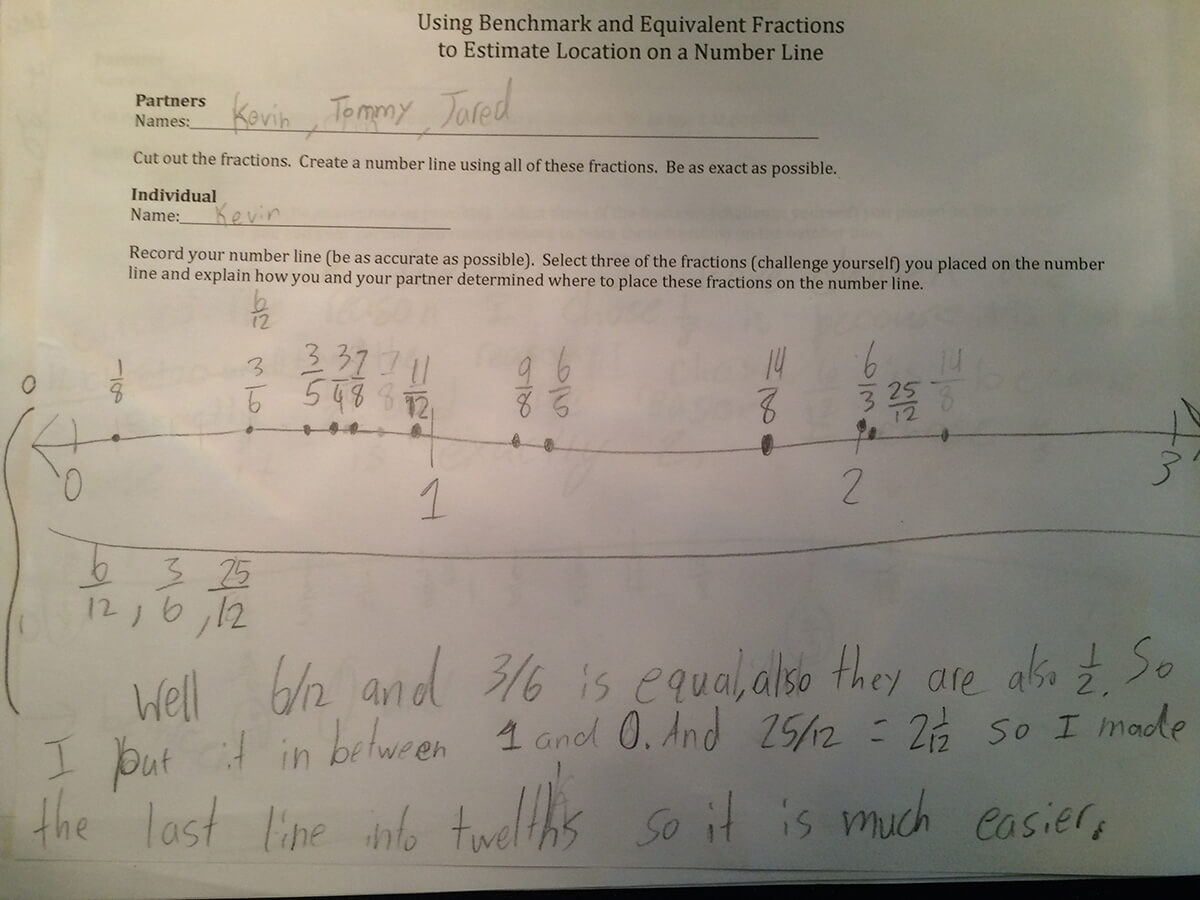 Using Benchmark and Equivalent Fractions
to Estimate Location on a Number Line
Partners
Names: Kevin, Tommy, Jared
Cut out the fractions. Create a number line using all of these fractions. Be as exact as possible.
Individual
Name: Kevin
Record your number line (be as accurate as possible). Select three of the fractions (challenge yourself) you placed on the number
line and explain how you and your partner determined where to place these fractions on the number line.
6/12
0 1/8 3/6 3/5 3/4 7/8 7/8 11/12 9/8 6/5 14/8 6/3 25/12 14/8
0 1 2 3
6/12, 3/6, 25/12
Well 6/12 and 3/6 is equal, also they are also 1/2. So
I put it in between 1 and 0. And 25/12 = 2 1/12 so I made
the last line into twelths so it is much easier.